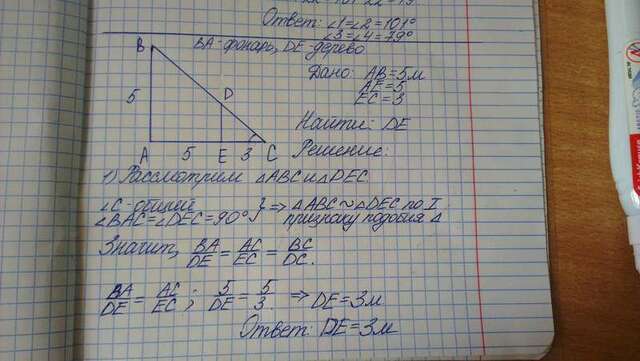 Ответ: ∠1=∠2=101°
∠3=∠4=79°
BA-фонарь, DE-дерево
Дано: AB=5м
AE=5
EC=3
Найти: DE
Решение:
B
D
5
A 5 E 3 C
1) Рассмотрим △ABC и △DEC
∠C-общий } ⇒ △ABC ~ △DEC по I
∠BAC=∠DEC=90° признаку подобия △
Значит, BA/DE = AC/EC = BC/DC.
BA/DE = AC/EC ; 5/DE = 5/3. ⇒ DE=3м
Ответ: DE=3м